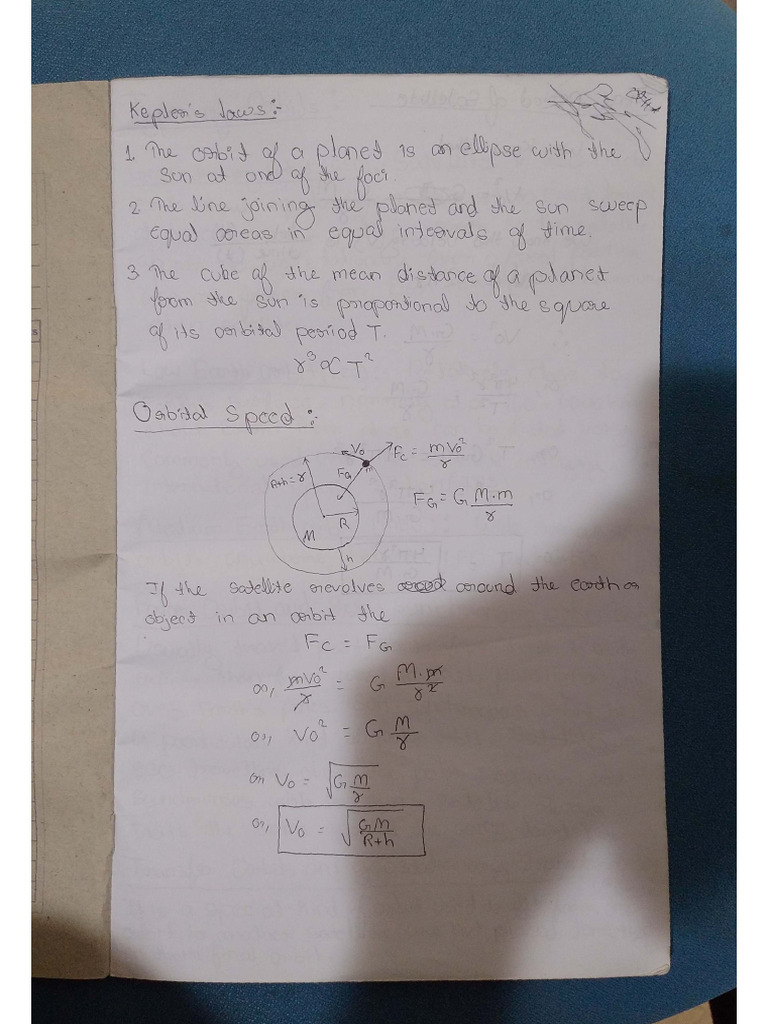 Kepler's Laws:-
1. The orbit of a planet is an ellipse with the
Sun at one of the foci.
2. The line joining the planet and the sun sweep
equal areas in equal intervals of time.
3. The cube of the mean distance of a planet
from the sun is proportional to the square
of its orbital period T.
r³ ∝ T²
Orbital Speed:-
V₀ F_C = mV₀²/r
R+h=r F_G m
F_G = G M.m/r
R
M
h
If the satellite revolves around the earth or
object in an orbit the
F_C = F_G
or, mV₀²/r = G M.m/r²
or, V₀² = G M/r
or, V₀ = √(G M/r)
or, V₀ = √(GM/R+h)